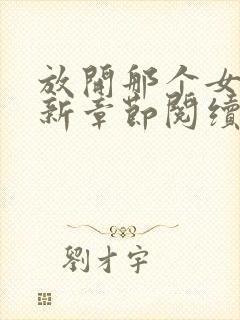 放開那个女
新章節閱續
劉才宇